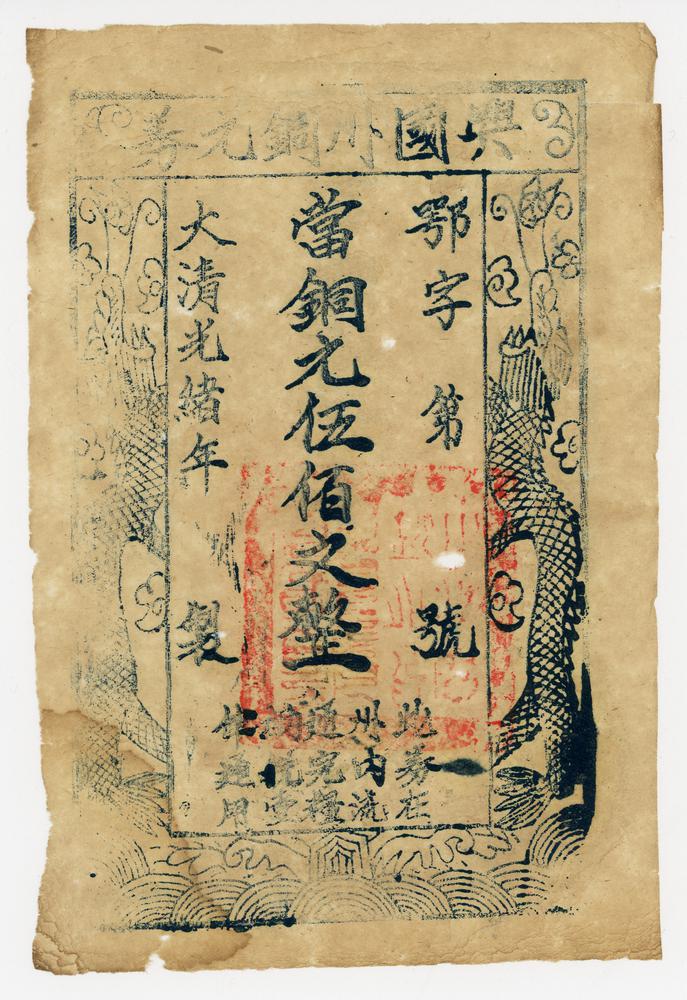 興國州銅元券
鄂字第號
當銅元伍佰文整
大清光緒年製
此券在
州內流
通完糧
納稅壹
通用